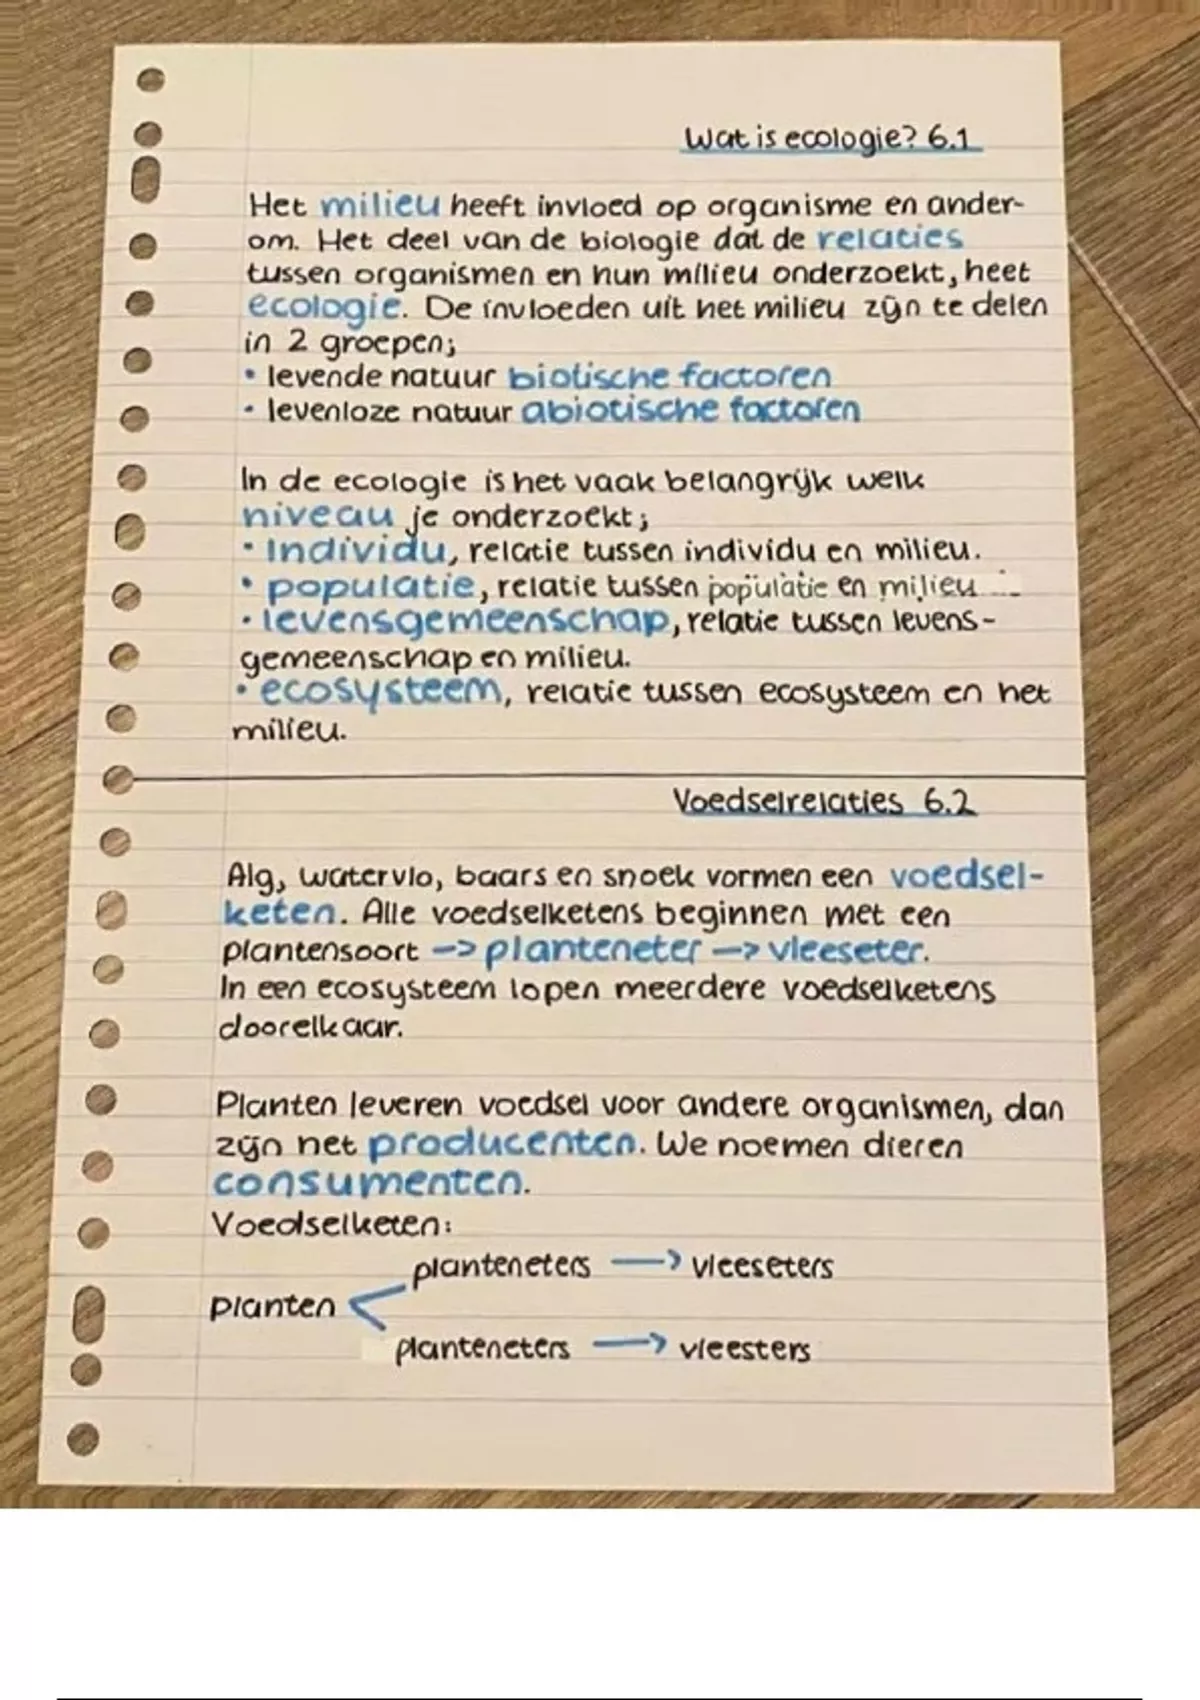 Wat is ecologie? 6.1
Het milieu heeft invloed op organisme en ander-
om. Het deel van de biologie dat de relaties
tussen organismen en hun milieu onderzoekt, heet
ecologie. De invloeden uit het milieu zijn te delen
in 2 groepen;
• levende natuur biotische factoren
• levenloze natuur abiotische factoren
In de ecologie is het vaak belangrijk welk
niveau je onderzoekt;
• Individu, relatie tussen individu en milieu.
• populatie, relatie tussen populatie en milieu
• levensgemeenschap, relatie tussen levens-
gemeenschap en milieu.
• ecosysteem, relatie tussen ecosysteem en het
milieu.
Voedselrelaties 6.2
Alg, watervlo, baars en snoek vormen een voedsel-
keten. Alle voedselketens beginnen met een
plantensoort -> planteneter -> vleeseter.
In een ecosysteem lopen meerdere voedselketens
doorelkaar.
Planten leveren voedsel voor andere organismen, dan
zijn het producenten. We noemen dieren
consumenten.
Voedselketen:
planteneters -> vleeseters
planten <
planteneters -> vleesters